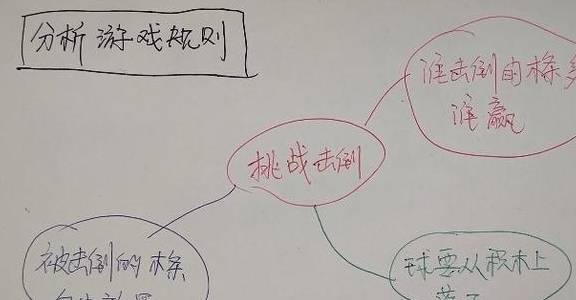 分析游戏规则
谁击倒的棒多
谁赢
挑战击倒
被击倒的棒
球要从积木上